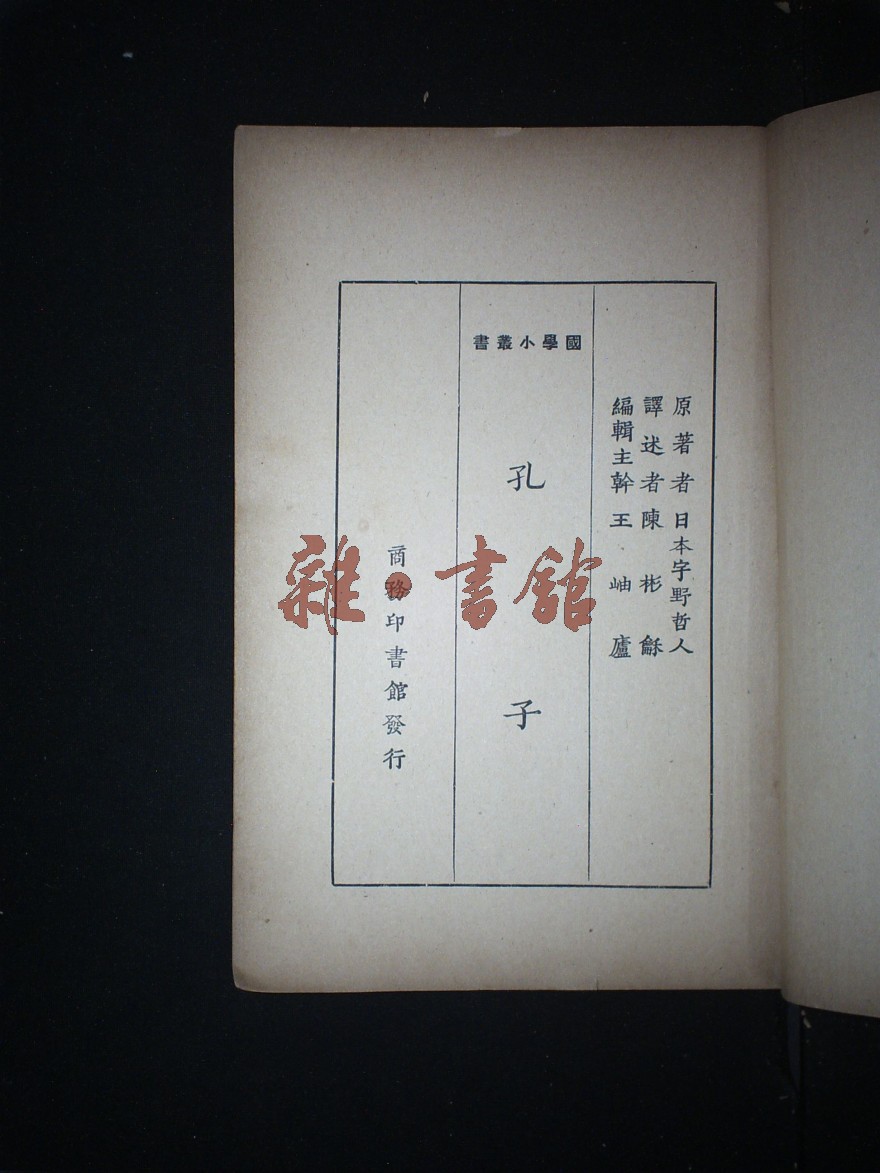 原著者 日本宇野哲人
譯述者 陳彬龢
編輯主幹 王岫廬
國學小叢書
孔子
商務印書館發行
雜·書館